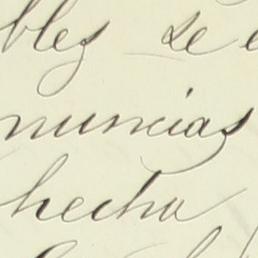 bles se e
nuncias
hecha